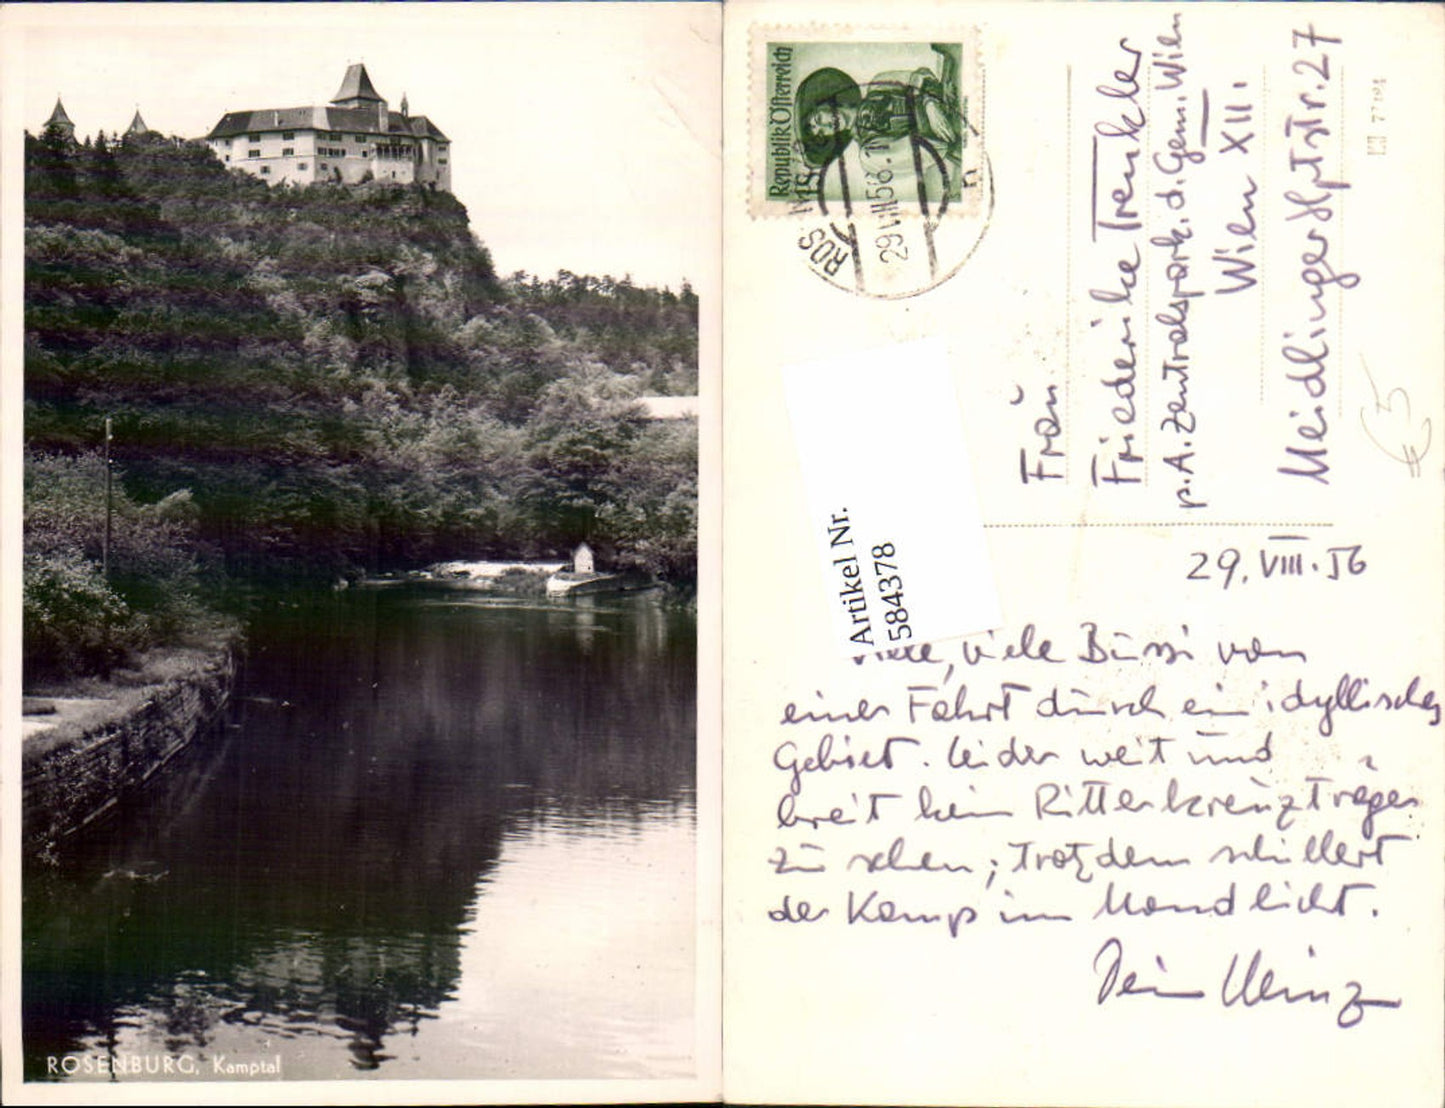 ROSENBURG, Kamptal
Republik Österreich
29.VIII.56.
Frau
Friederike Trenkler
p.A. Zentralspark. d. Gem. Wien
Wien XII.
Meidlinger Hptstr. 27
€ 5
Artikel Nr.
584378
29. VIII. 56
viele, viele Bussi von
einer Fahrt durch ein idyllisches
Gebiet. Leider weit und
breit kein Ritterkreuzträger
zu sehen; trotzdem schillert
der Kamp im Mondlicht.
Dein Heinz